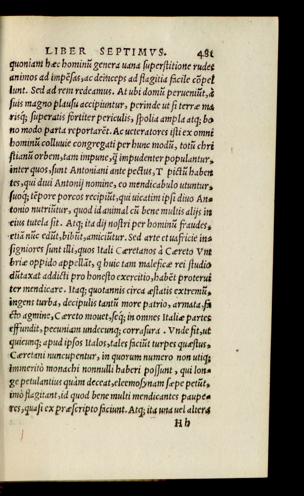 LIBER SEPTIMVS. 481
quoniam hæc hominũ genera uana superstitione rudes
animos ad impẽsas, ac deinceps ad flagitia facile cõpel
lunt. Sed ad rem redeamus. At ubi domũ perueniũt, à
suis magno plausu accipiuntur, perinde ut si terræ ma
risq; superatis fortiter periculis, spolia ampla atq; bo
no modo parta reportarẽt. Ac ueteratores isti ex omni
hominũ colluuie congregati per hunc modũ, totũ chri
stianũ orbem, tam impune, q̃ impudenter populantur.
inter quos, sunt Antoniani ante pectus, T pictũ haben
tes, qui diui Antonij nomine, eo mendicabulo utuntur,
suoq; tẽpore porcos recipiũt, qui uicatim ipsi diuo An-
tonio nutriũtur, quod id animal cũ bene multis alijs in
eius tutela sit. Atq; ita dij nostri per hominũ fraudes,
etiã nũc edũt, bibũt, amiciũtur. Sed arte et uafricie in-
signiores sunt illi, quos Itali Cæretanos à Cæreto Vm
briæ oppido appellãt, q huic tam maleficæ rei studio
dũtaxat addicti pro honesto exercitio, habẽt proterui
ter mendicare. Itaq; quotannis circa æstatis extremũ,
ingens turba, decipulis tantũ more patrio, armata, fa
cto agmine, Cæreto mouet, seq; in omnes Italiæ partes
effundit, pecuniam undecunq; corrasura. Vnde fit, ut
quicunq; apud ipsos Italos, tales faciũt turpes quæstus,
Cæretani nuncupentur, in quorum numero non utiq;
immeritò monachi nonnulli haberi possunt, qui lon-
ge petulantius quàm deceat, eleemosynam sæpe petũt,
imò flagitant, id quod bene multi mendicantes paupe-
res, quasi ex præscripto faciunt. Atq; ita una uel altera
Hh